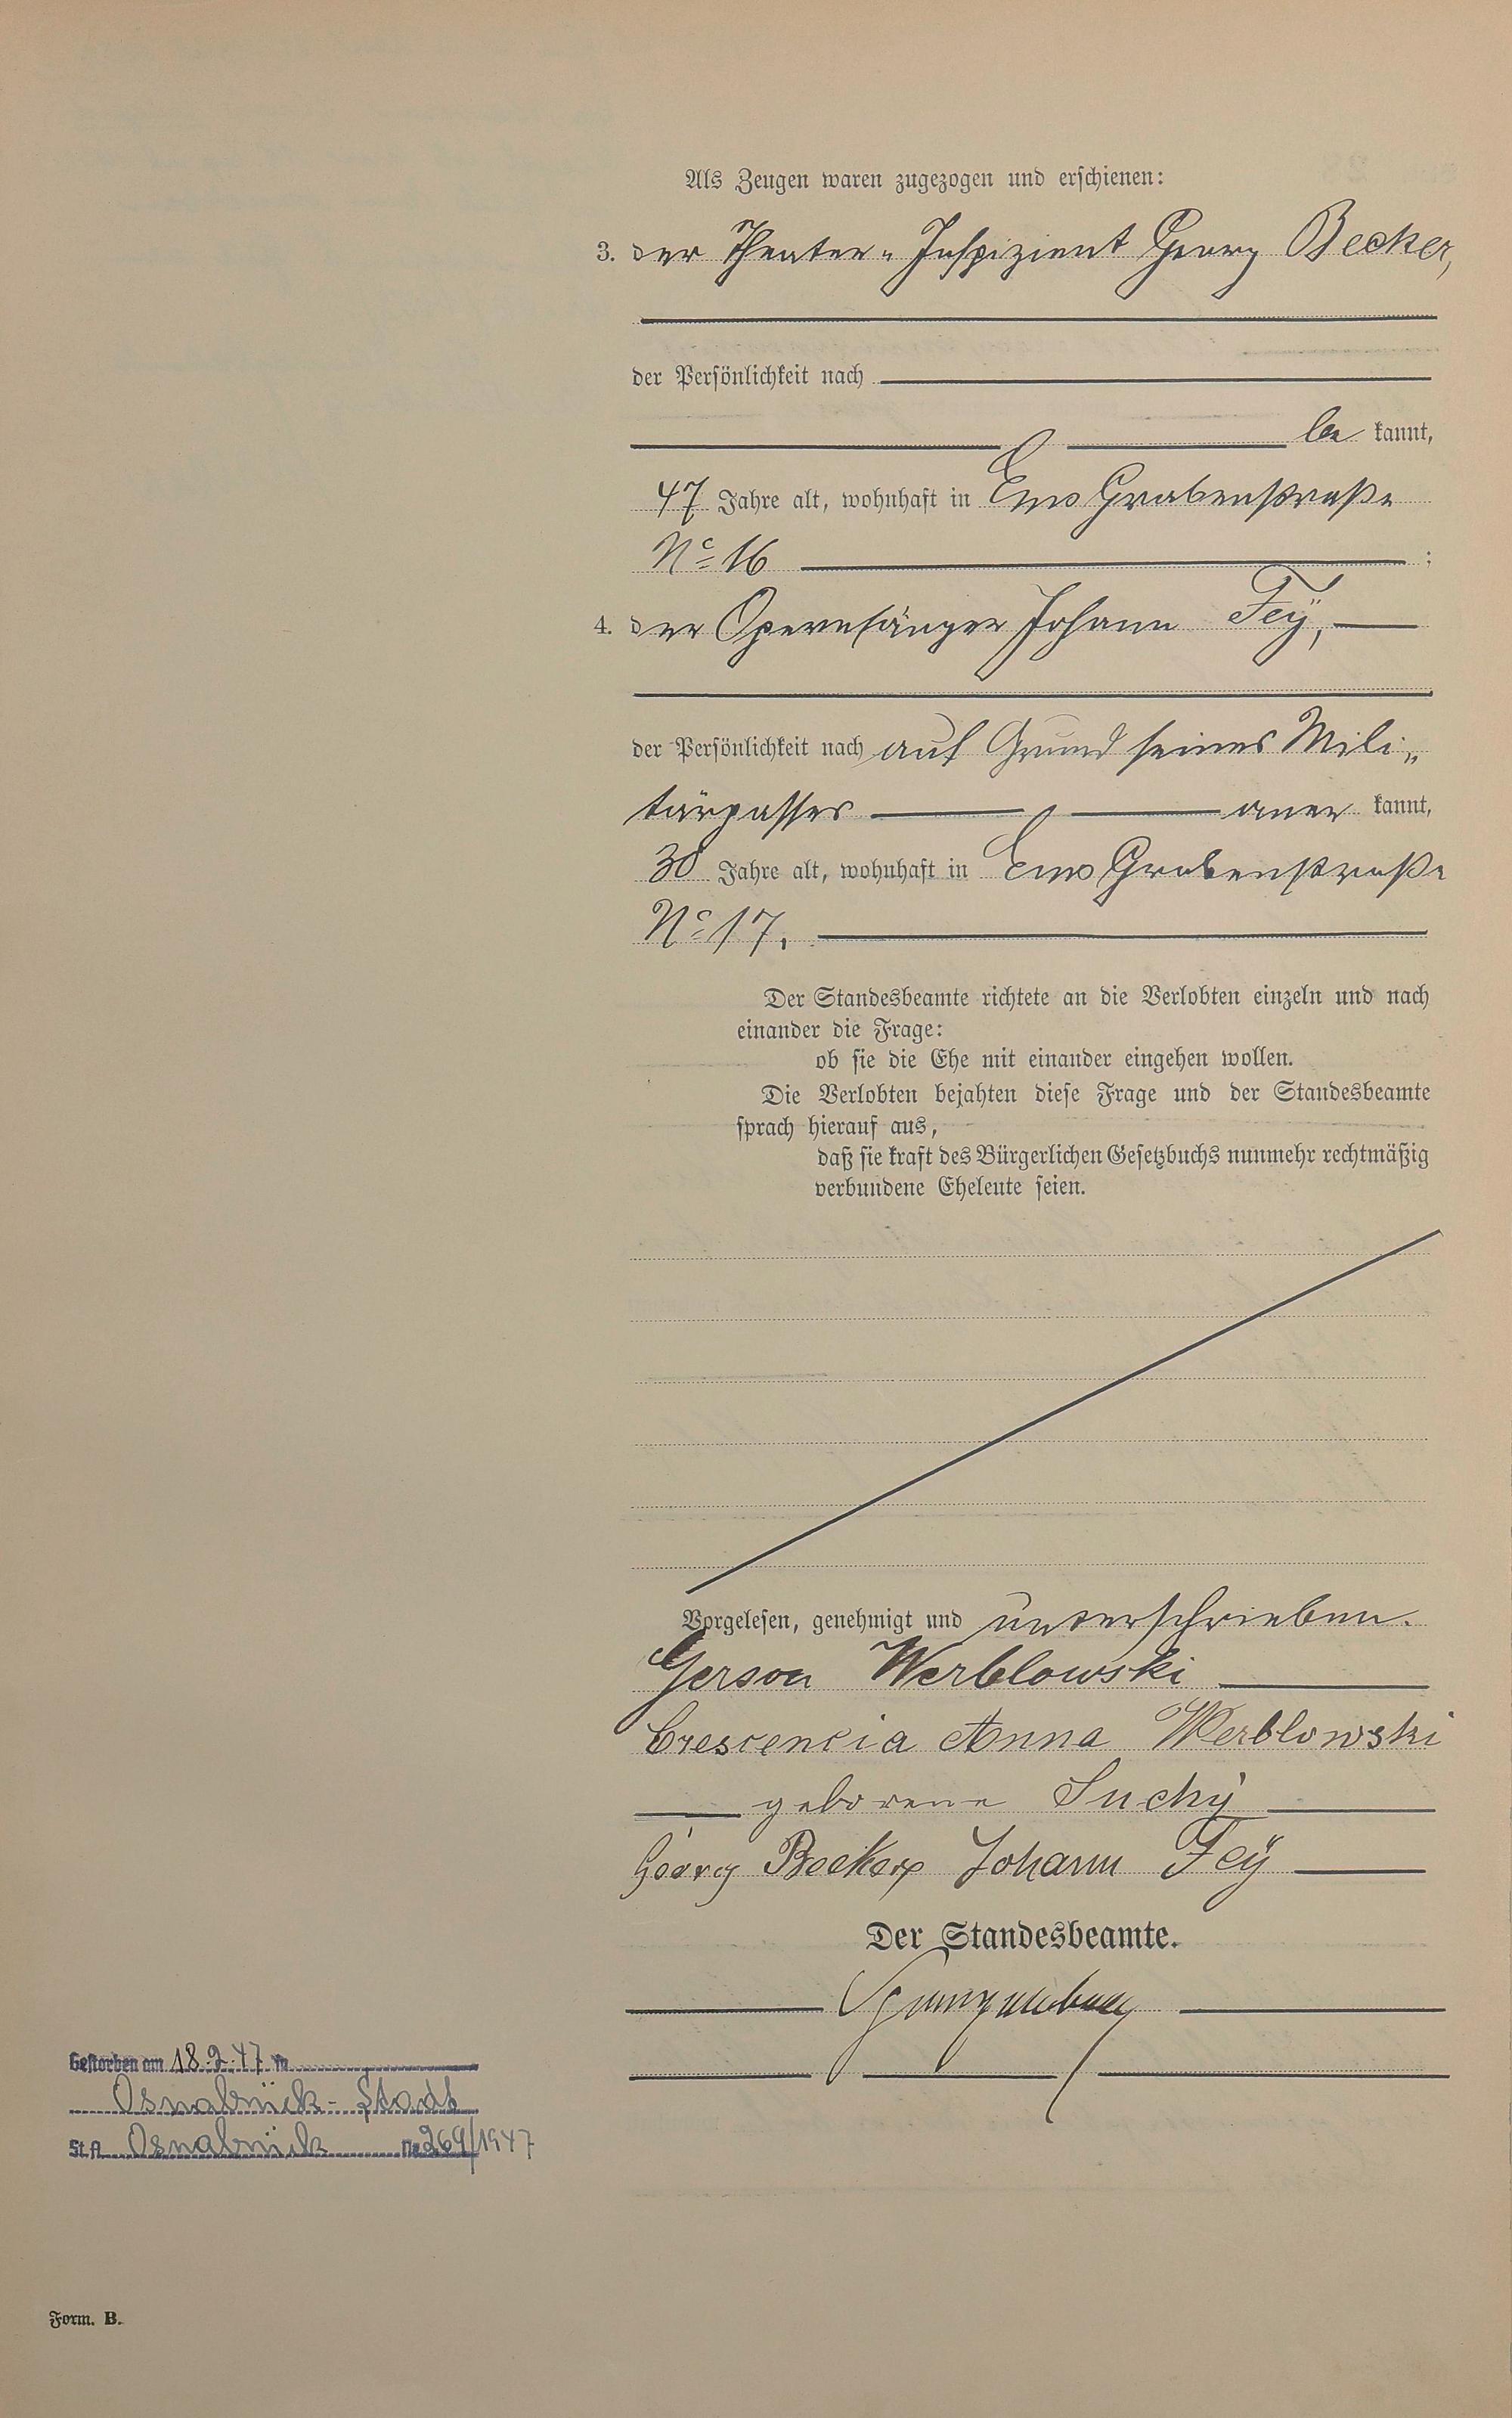 Als Zeugen waren zugezogen und erschienen:
3. der Theater-Inspizient Georg Becker,
der Persönlichkeit nach
be kannt,
47 Jahre alt, wohnhaft in Ems Grabenstraße
No 16 ;
4. der Opernsänger Johann Feÿ,
der Persönlichkeit nach auf Grund seines Mili-
tärpasses aner kannt,
30 Jahre alt, wohnhaft in Ems Grabenstraße
No 17,
Der Standesbeamte richtete an die Verlobten einzeln und nach
einander die Frage:
ob sie die Ehe mit einander eingehen wollen.
Die Verlobten bejahten diese Frage und der Standesbeamte
sprach hierauf aus,
daß sie kraft des Bürgerlichen Gesetzbuchs nunmehr rechtmäßig
verbundene Eheleute seien.
Vorgelesen, genehmigt und unterschrieben.
Gerson Werblowski
Crescencia Anna Werblowski
geborene Suchÿ
Georg Becker Johann Feÿ
Der Standesbeamte.
Gestorben am 18.2.47 in
Osnabrück-Stadt
St.A. Osnabrück Nr. 269/1947
Form. B.